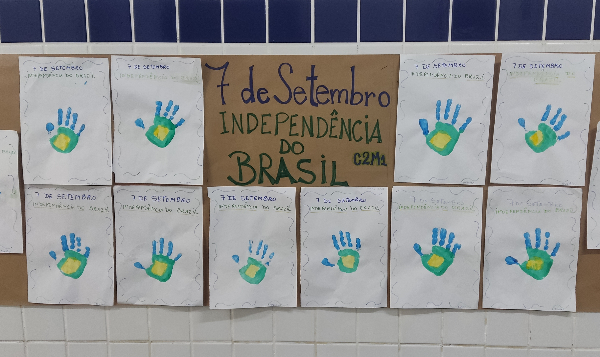 7 de Setembro
INDEPENDÊNCIA
DO
BRASIL C2M1
7 DE SETEMBRO
INDEPENDÊNCIA DO BRASIL
7 DE SETEMBRO
INDEPENDÊNCIA DO BRASIL
7 DE SETEMBRO
INDEPENDÊNCIA DO BRASIL
7 DE SETEMBRO
INDEPENDÊNCIA DO
7 DE SETEMBRO
INDEPENDÊNCIA DO BRASIL
7 DE SETEMBRO
INDEPENDÊNCIA DO BRASIL
7 DE SETEMBRO
INDEPENDÊNCIA DO BRASIL
7 DE SETEMBRO
INDEPENDÊNCIA DO BRASIL
7 DE SETEMBRO
INDEPENDÊNCIA DO BRASIL
7 DE SETEMBRO